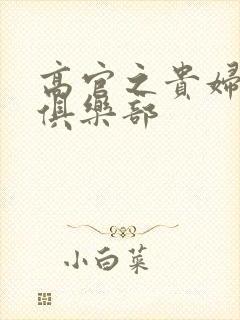 高官之貴婦
俱樂部
小白菜